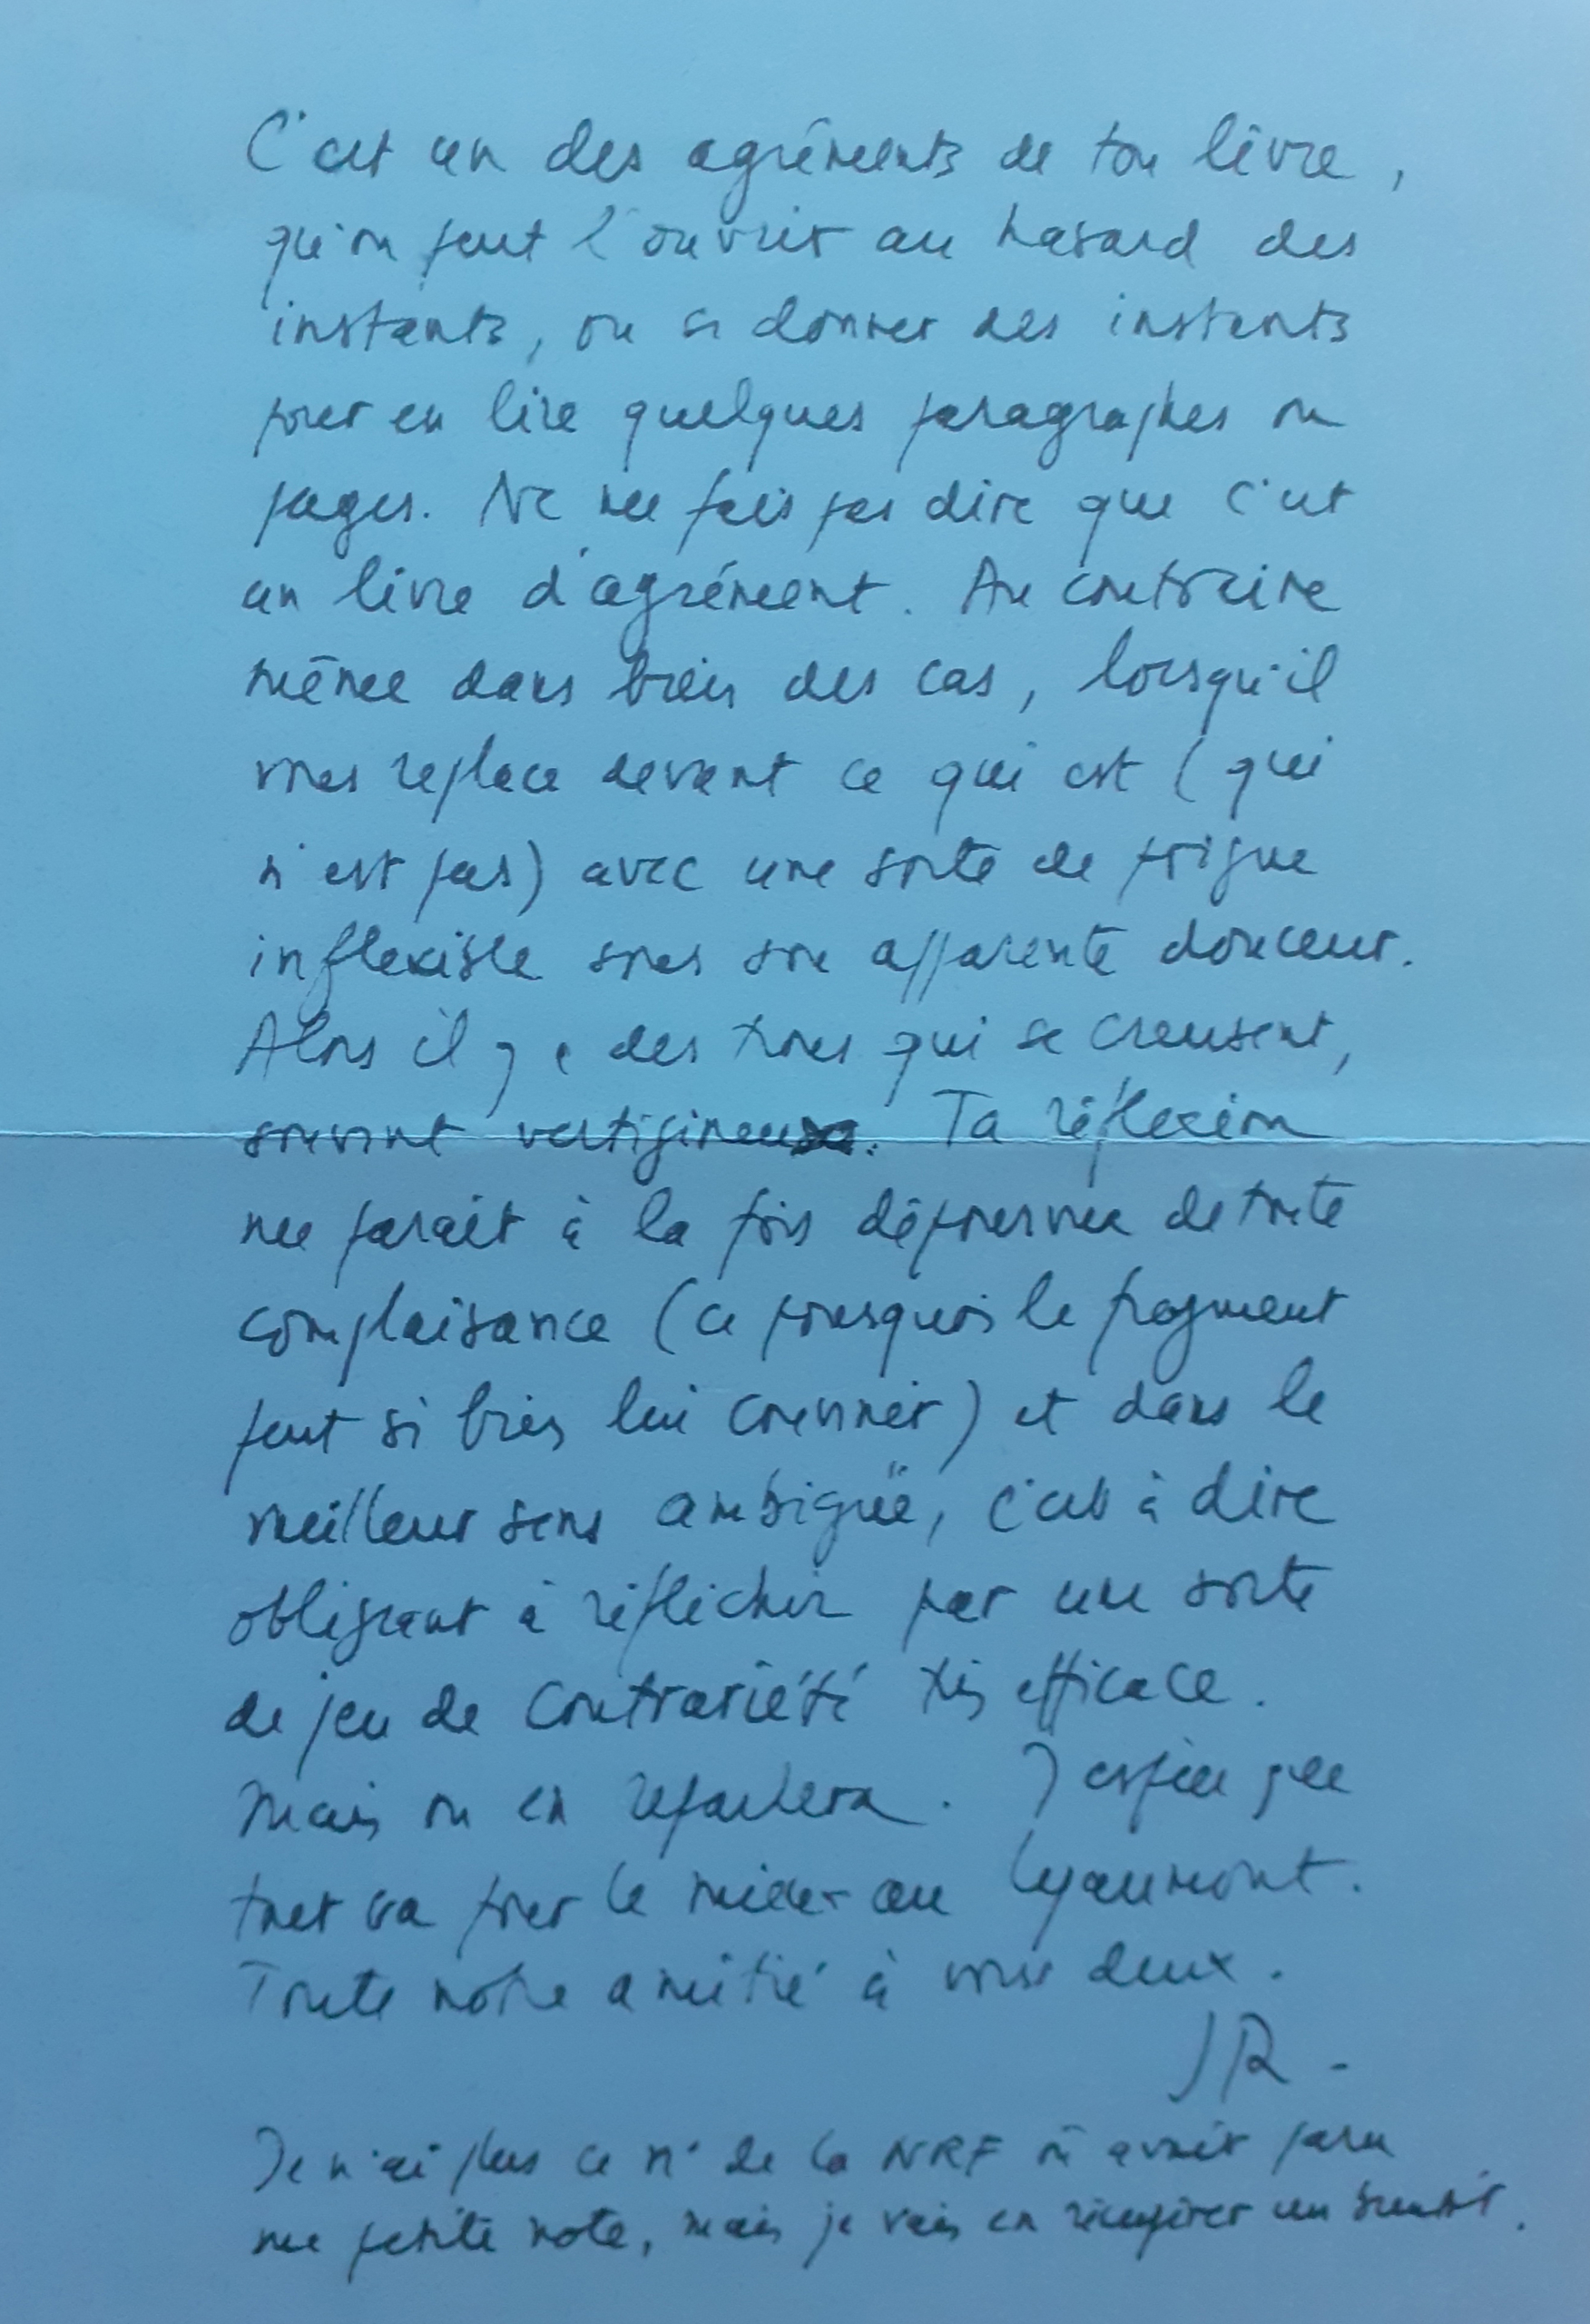 C'est un des agréments de ton livre,
qu'on peut l'ouvrir au hasard des
instants, ou se donner des instants
pour en lire quelques paragraphes ou
pages. Ne me fais pas dire que c'est
un livre d'agrément. Au contraire
même dans bien des cas, lorsqu'il
nous replace devant ce qui est (qui
n'est pas) avec une sorte de poigne
inflexible sous son apparente douceur.
Alors il y a des trous qui se creusent,
souvent vertigineux. Ta réflexion
me paraît à la fois dépourvue de toute
complaisance (ce pourquoi le fragment
peut si bien lui convenir) et dans le
meilleur sens ambiguë, c'est à dire
obligeant à réfléchir par une sorte
de jeu de contrariété très efficace.
Mais on en reparlera. J'espère que
tout va pour le mieux au Lyaumont.
Toute notre amitié à vous deux.
JR -
Je n'ai plus ce n° de la NRF où avait paru
ma petite note, mais je vais en récupérer un bientôt.